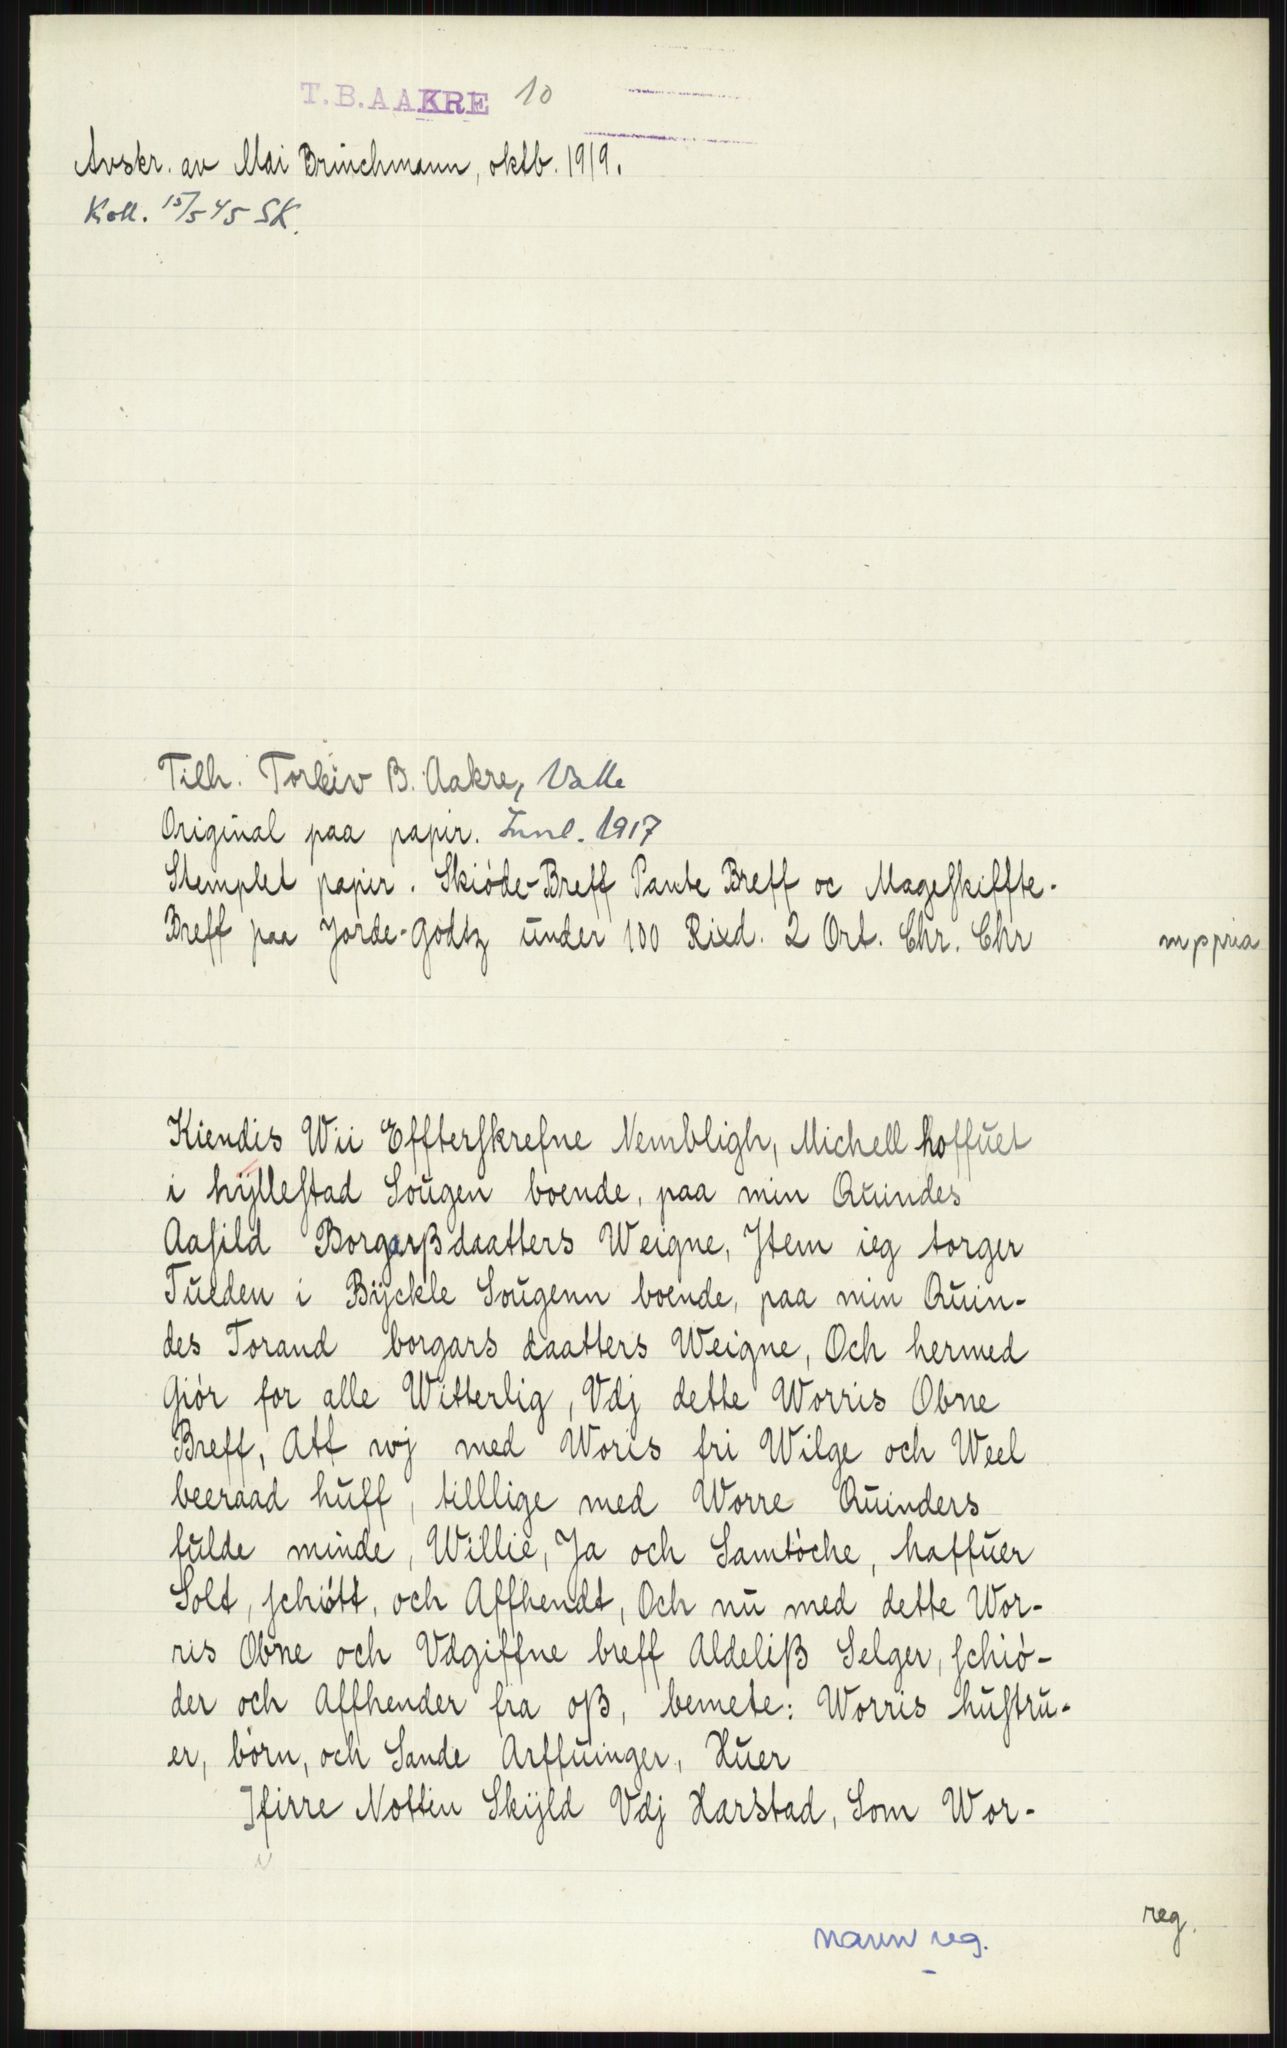 T.B.AAKRE 10
Avskr. av Mai Brinchmann, oktb. 1919.
Koll. 15/5 45 SK.
Tilh. Torleiv B. Aakre, Valle
Original paa papir. Innl. 1917
Stemplet papir. Skiöde-Breff Pante Breff oc Mageſkiffte-
Breff paa Jorde-Godtz under 100 Rixd. 2 Ort. Chr. Chr mppria
Kiendis Wii Effterſkrefne Nembligh, Michell hoffuet
i hÿlleſtad Sougen boende, paa min Quindes
Aaſild Borgarßdaatters Weigne, Jtem ieg torger
Tueden i Bÿckle Sougenn boende, paa min Quin-
des Torand borgars daatters Weigne, Och hermed
Giör for alle Witterlig, Vdj dette Worris Obne
Breff, Att wj med Woris fri Wilge och Weel
beeraad huff, tilllige med Worre Quinders
fulde minde, Willie, Ja och Samtöche, haffuer
Solt, ſchiött, och Affhendt, Och nu med dette Wor-
ris Obne och Vdgiffne breff Aldeliß Selger, ſchiö-
der och Affhender fra oß, bemete: Worris huſtru-
er, börn, och Sande Arffuinger, Huer
Jfirre Nottin Skÿld Vdj Harstad, Som Wor-
reg.
navnreg.